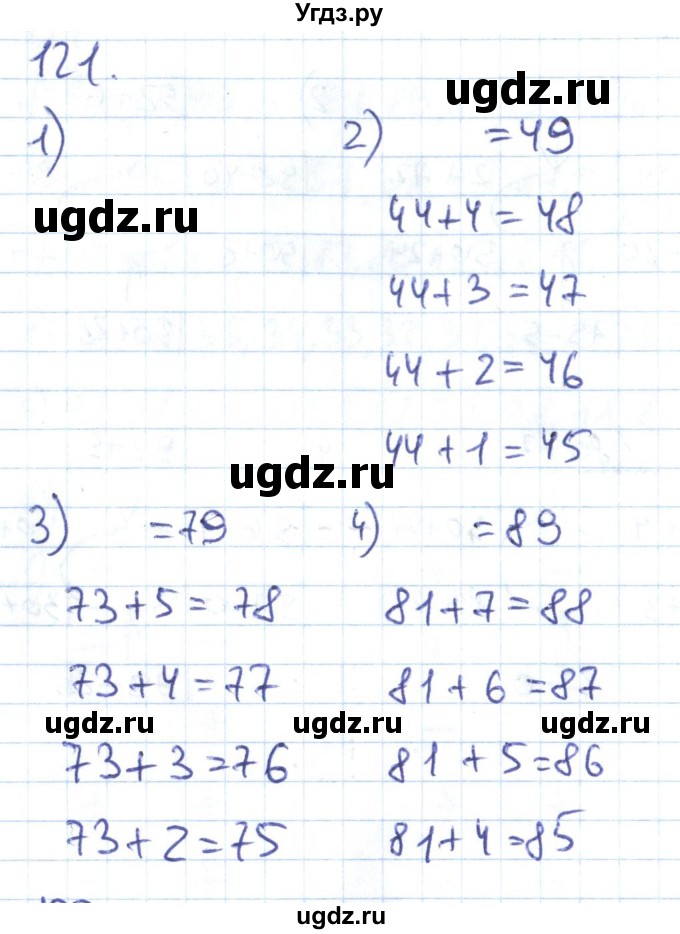 Угдз.ру
121.
ugdz.ru
1)
2) =49
ugdz.ru
44+4=48
44+3=47
44+2=46
44+1=45
ugdz.ru
3) =79
4) =89
73+5=78
81+7=88
73+4=77
81+6=87
ugdz.ru ugdz.ru ugdz.ru
73+3=76
81+5=86
73+2=75
81+4=85
ugdz.ru